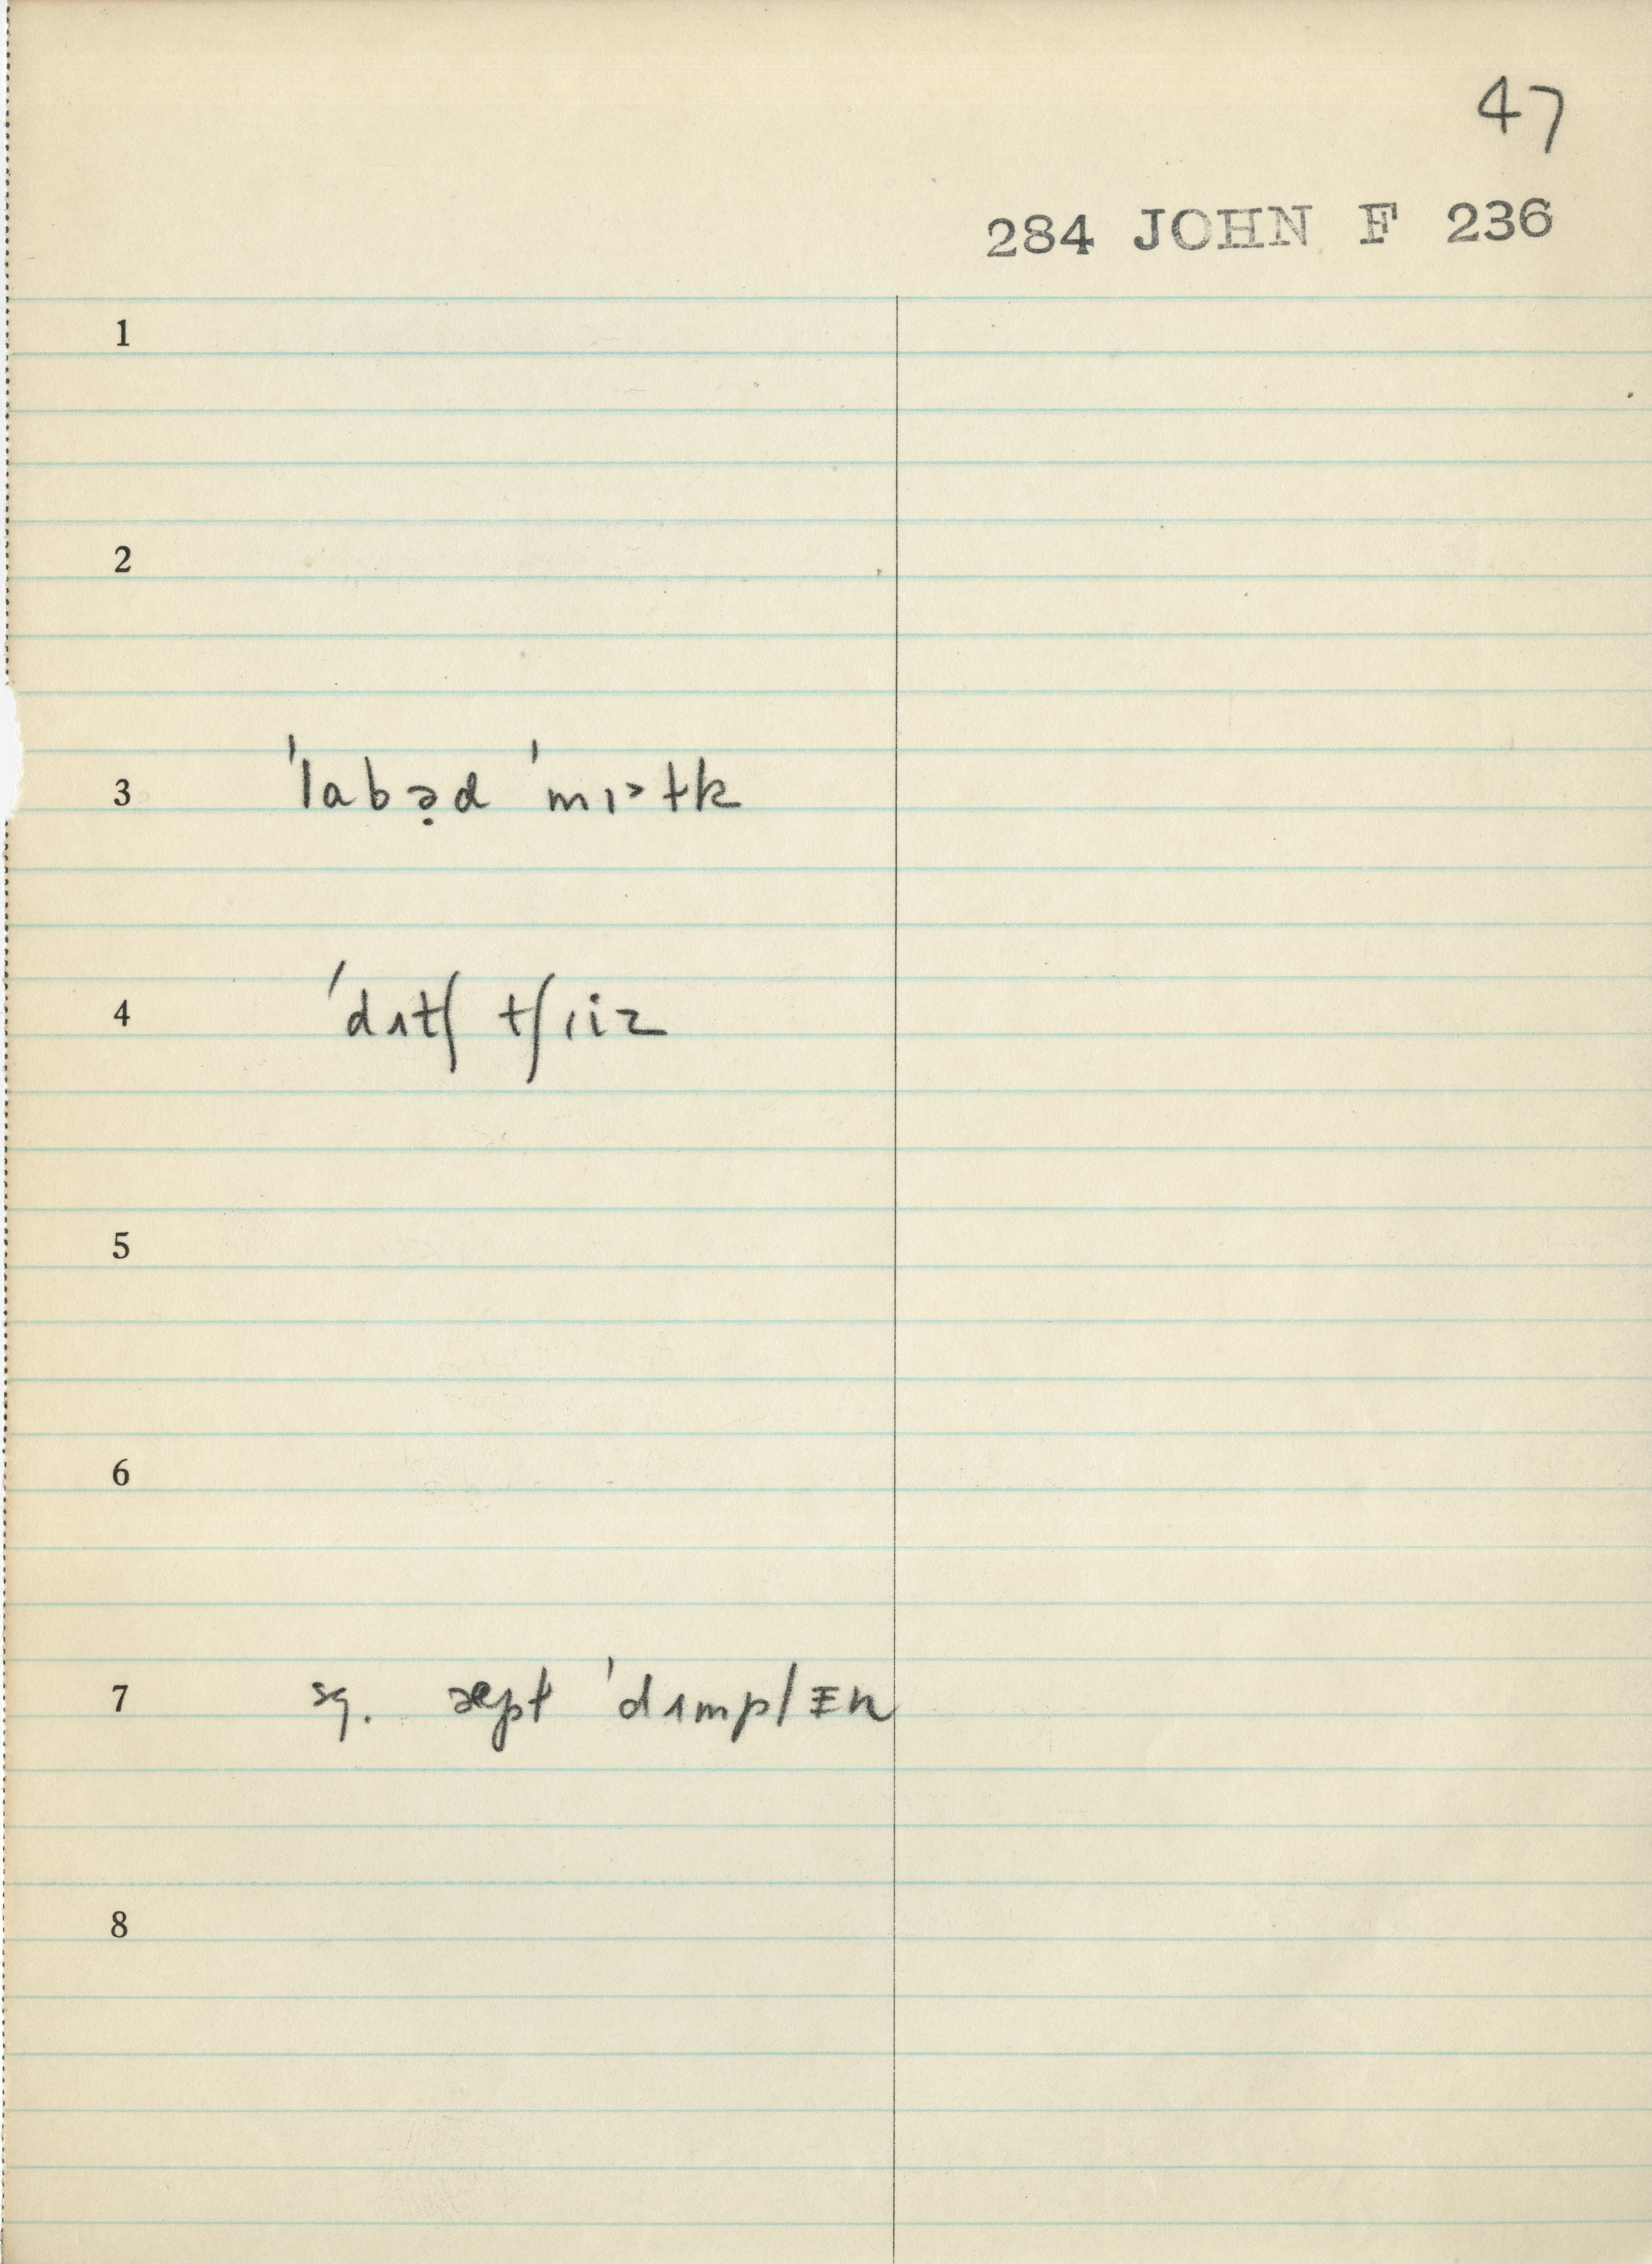 47
284 JOHN F 236
1
2
3 ˈlabə̣d ˈmɪᵊɫk
4 ˈdʌtʃ tʃɪiz
5
6
7 sg. æpɫ ˈdʌmplɪn
8